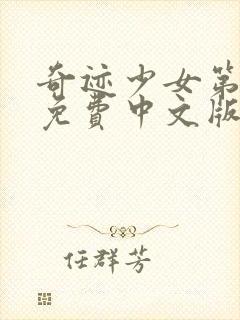 奇迹少女第
免費中文版
任群芳